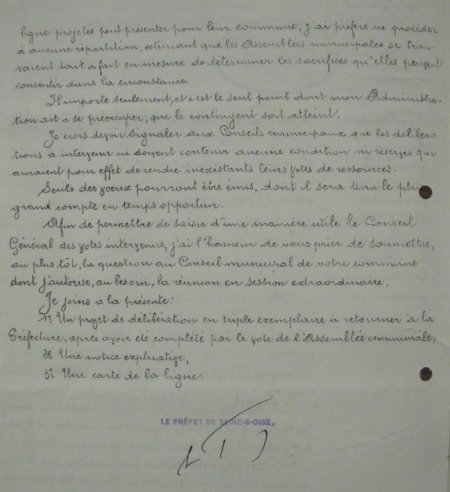 ligne projetée peut présenter pour leur commune, j'ai préféré ne procéder
à aucune répartition, estimant que les Assemblées municipales se trou-
vaient tout à fait en mesure de déterminer les sacrifices qu'elles peuvent
consentir dans la circonstance.
Il importe seulement, et c'est le seul point dont mon Administra-
tion ait à se préoccuper, que le contingent soit atteint.
Je crois devoir signaler aux Conseils municipaux que les délibéra-
tions à intervenir ne doivent contenir aucune condition ni réserves qui
auraient pour effet de rendre inexistants leurs votes de ressources.
Seuls des voeux pourront être émis, dont il sera tenu le plus
grand compte en temps opportun.
Afin de permettre de saisir d'une manière utile le Conseil
Général des votes intervenus, j'ai l'honneur de vous prier de soumettre,
au plus tôt, la question au Conseil municipal de votre commune
dont j'autorise, au besoin, la réunion en session extraordinaire.
Je joins à la présente:
1º Un projet de délibération en triple exemplaire à retourner à la
Préfecture, après avoir été complété par le vote de l'Assemblée communale;
2º Une notice explicative,
3º Une carte de la ligne.
LE PRÉFET DE SEINE-&-OISE,